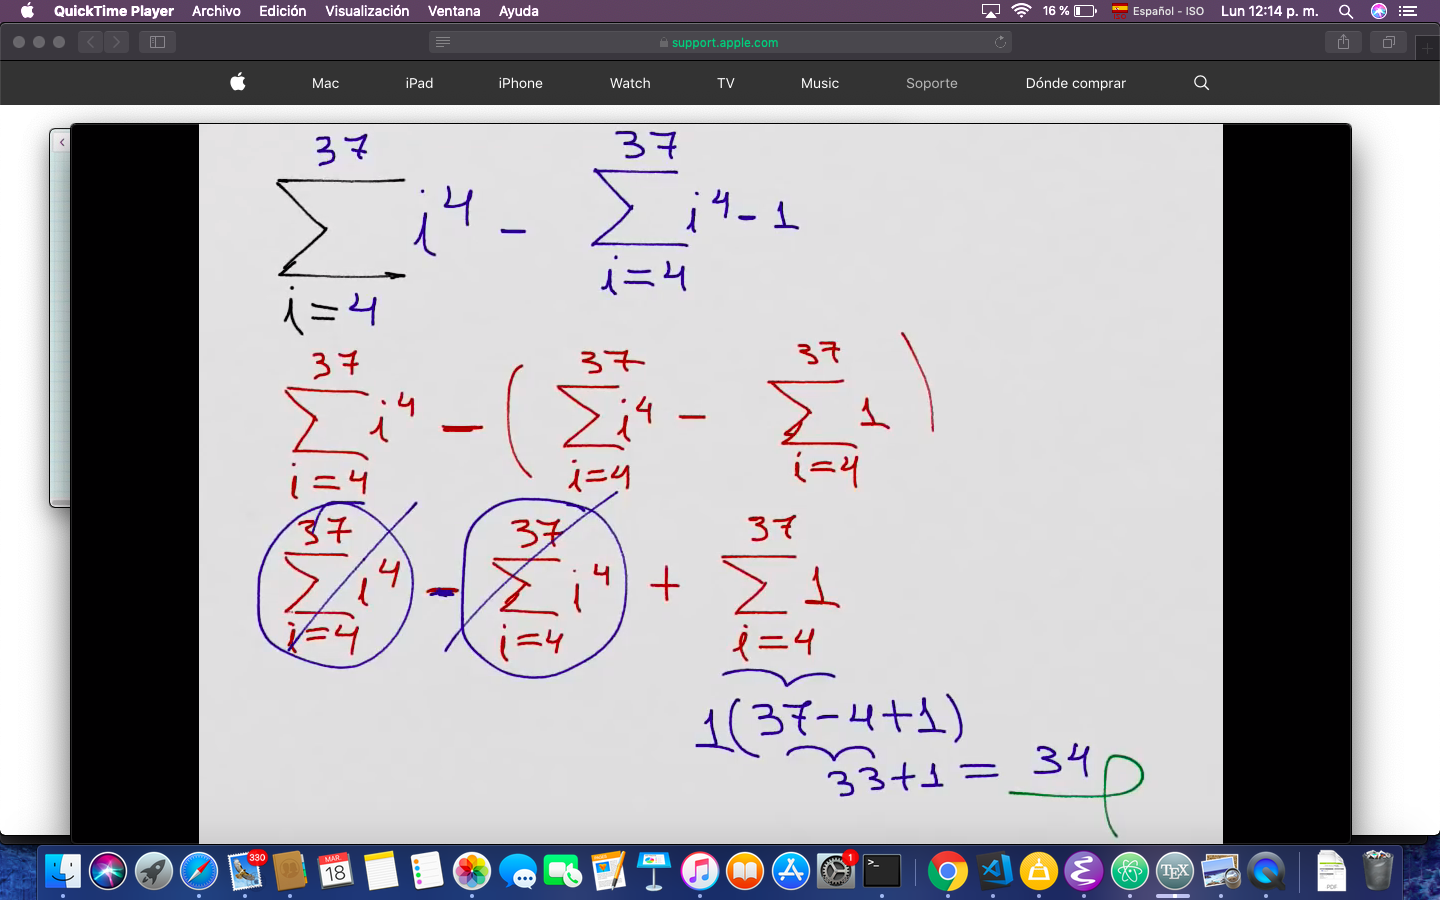 QuickTime Player Archivo Edición Visualización Ventana Ayuda 16 % Español - ISO Lun 12:14 p. m.
support.apple.com
Mac iPad iPhone Watch TV Music Soporte Dónde comprar
37 37
∑ i⁴ - ∑ i⁴ - 1
i=4 i=4
37 37 37
∑ i⁴ - ( ∑ i⁴ - ∑ 1 )
i=4 i=4 i=4
37 37 37
∑ i⁴ - ∑ i⁴ + ∑ 1
i=4 i=4 i=4
1(37-4+1)
33+1 = 34
330 MAR. 18 1 >_ TEX PDF